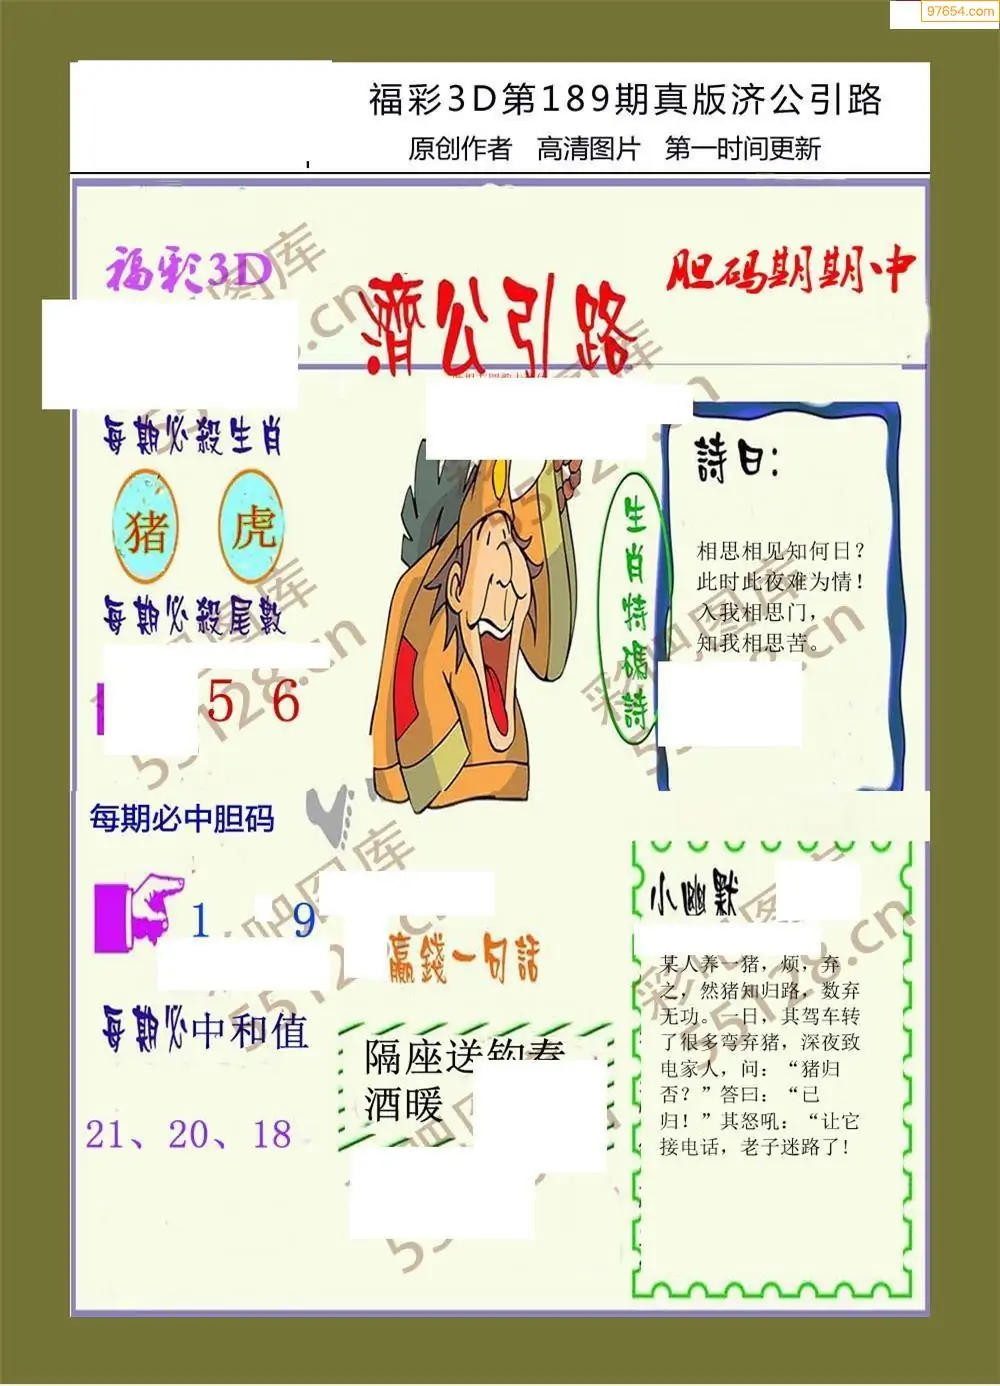 97654.com
福彩3D第189期真版济公引路
原创作者 高清图片 第一时间更新
福彩3D
濟公引路
胆码期期中
每期必殺生肖
猪 虎
每期必殺尾數
5 6
每期必中胆码
1 9
每期必中和值
21、20、18
生肖特碼詩
詩曰：
相思相见知何日？
此时此夜难为情！
入我相思门，
知我相思苦。
贏錢一句話
隔座送钩春
酒暖
小幽默
某人养一猪，烦，弃
之，然猪知归路，数弃
无功。一日，其驾车转
了很多弯弃猪，深夜致
电家人，问：“猪归
否？”答曰：“已
归！”其怒吼：“让它
接电话，老子迷路了！
彩吧图库
55128.cn